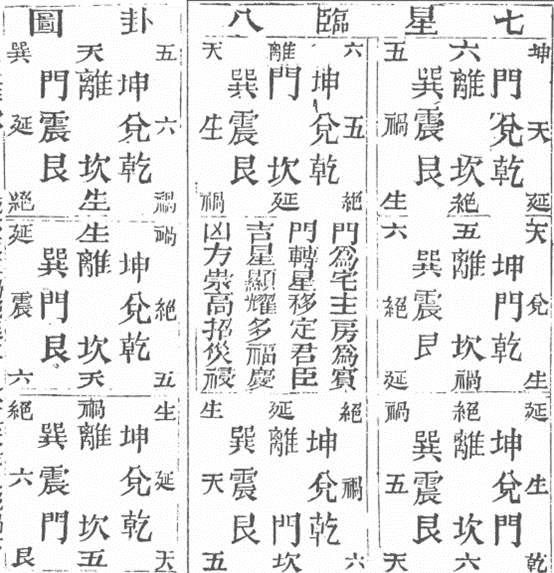 七星臨八卦圖
坤六五
門離巽
天兌震禍
乾坎艮
延絕生
天五六
坤離巽
兌門震絕
乾坎艮
生禍延
延絕禍
坤離巽
生兌震五
門坎艮
乾六天
六離天
坤門巽
五兌震生
乾坎艮
絕延禍
門爲宅主房爲賓
門轉星移定君臣
吉星顯耀多福慶
凶方崇高招災祲
絕延生
坤離巽
禍兌震天
乾門艮
六坎五
五天巽
坤離門
六兌震延
乾坎艮
禍生絕
禍生延
坤離巽
絕兌門震
乾坎艮
五天六
生禍絕
坤離巽
延兌震六
乾坎門
天五艮